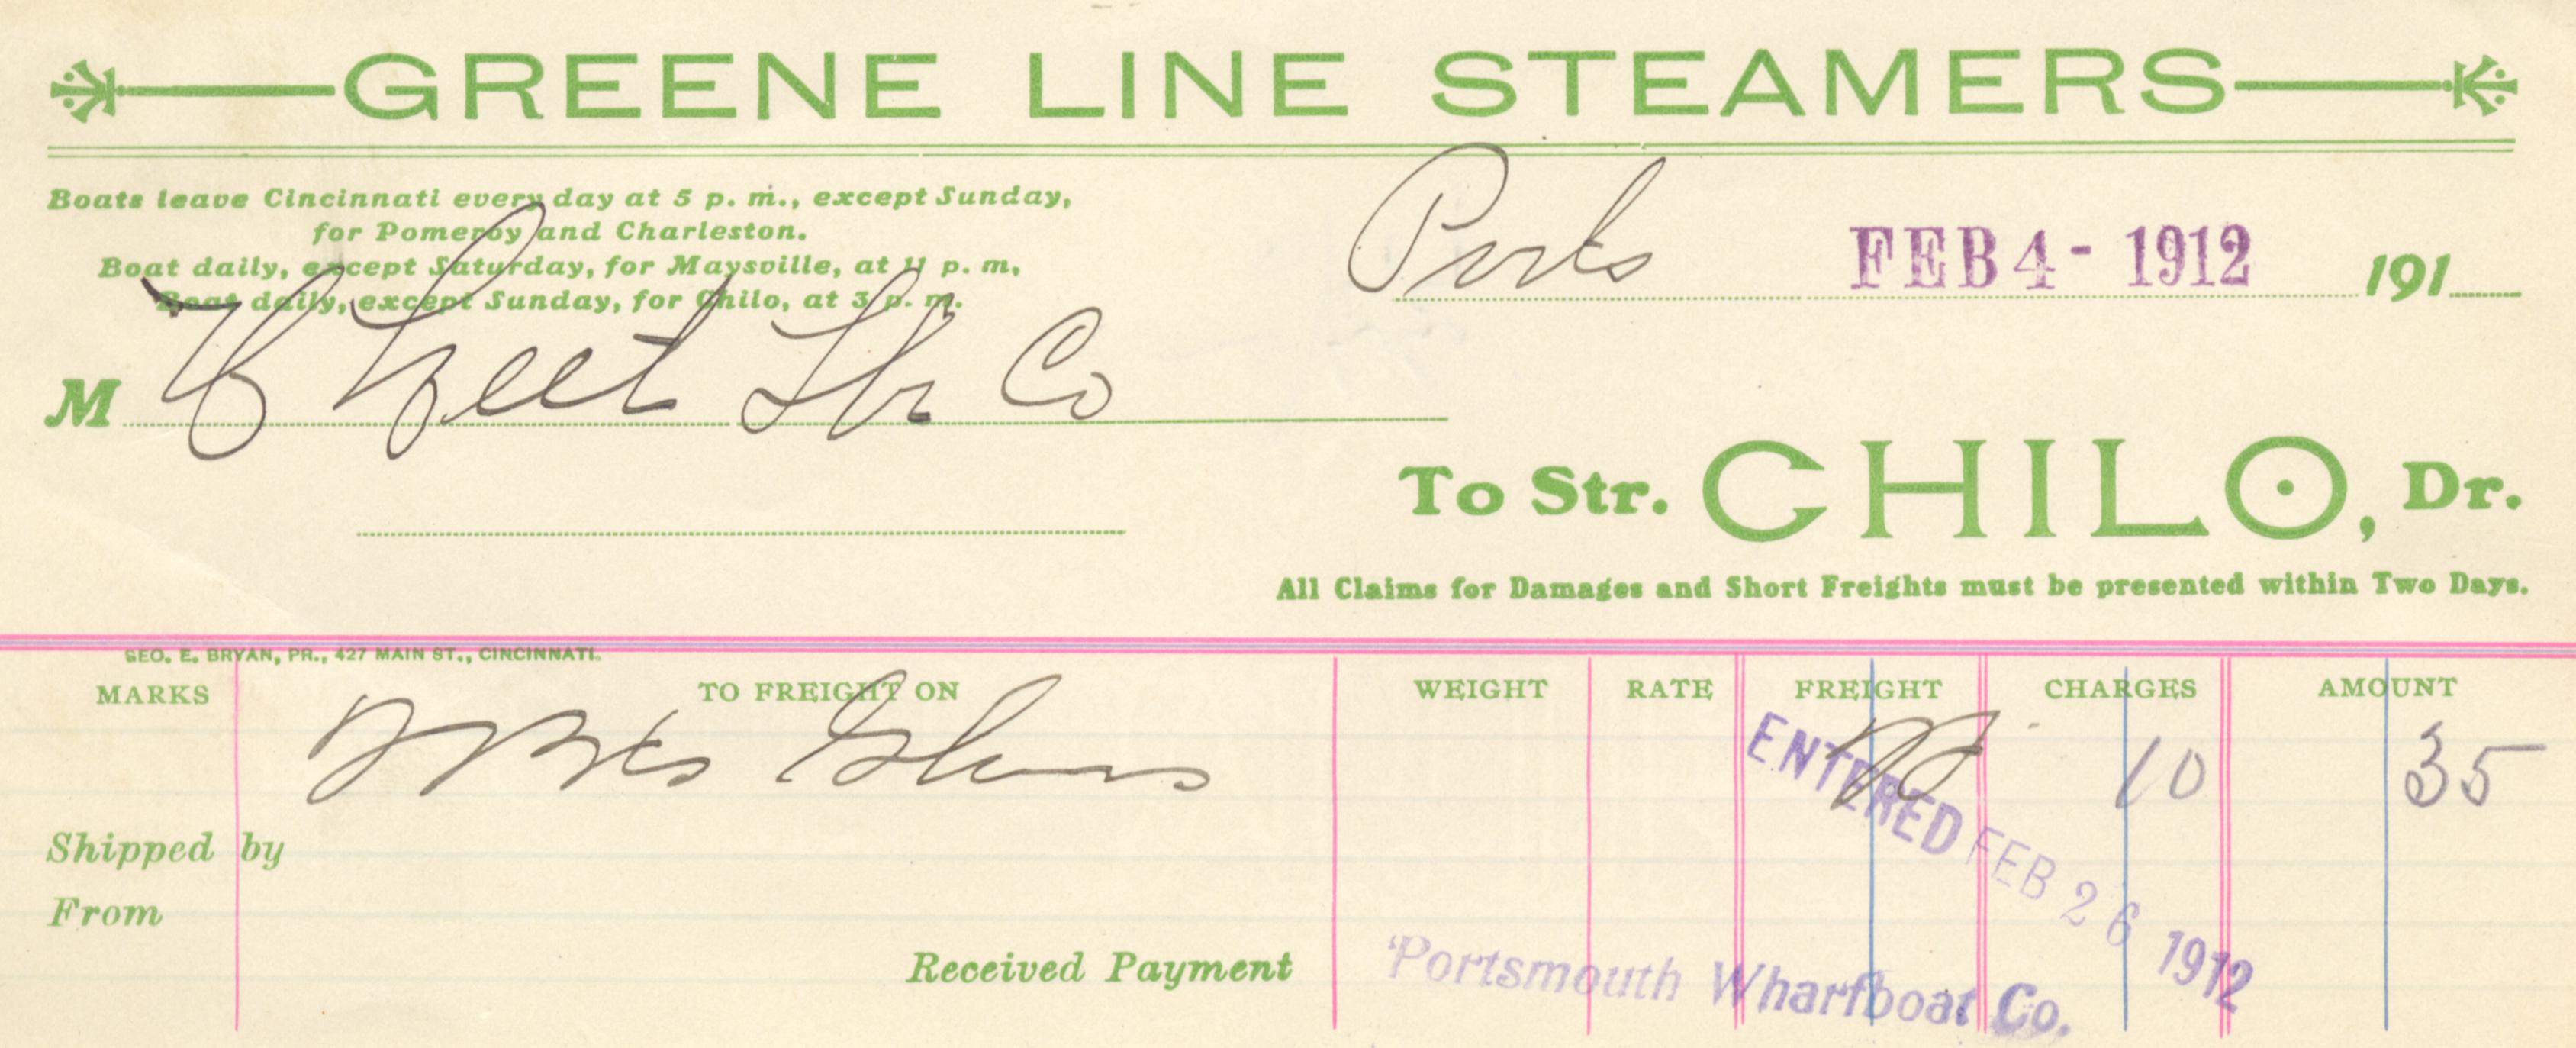 GREENE LINE STEAMERS
Boats leave Cincinnati every day at 5 p. m., except Sunday,
for Pomeroy and Charleston.
Boat daily, except Saturday, for Maysville, at 11 p. m,
Boat daily, except Sunday, for Chilo, at 3 p. m.
Ports FEB 4 - 1912 191
M Co
To Str. CHILO, Dr.
All Claims for Damages and Short Freights must be presented within Two Days.
GEO. E. BRYAN, PR., 427 MAIN ST., CINCINNATI.
MARKS TO FREIGHT ON WEIGHT RATE FREIGHT CHARGES AMOUNT
10 35
ENTERED FEB 26 1912
Shipped by
From
Received Payment Portsmouth Wharfboat Co.